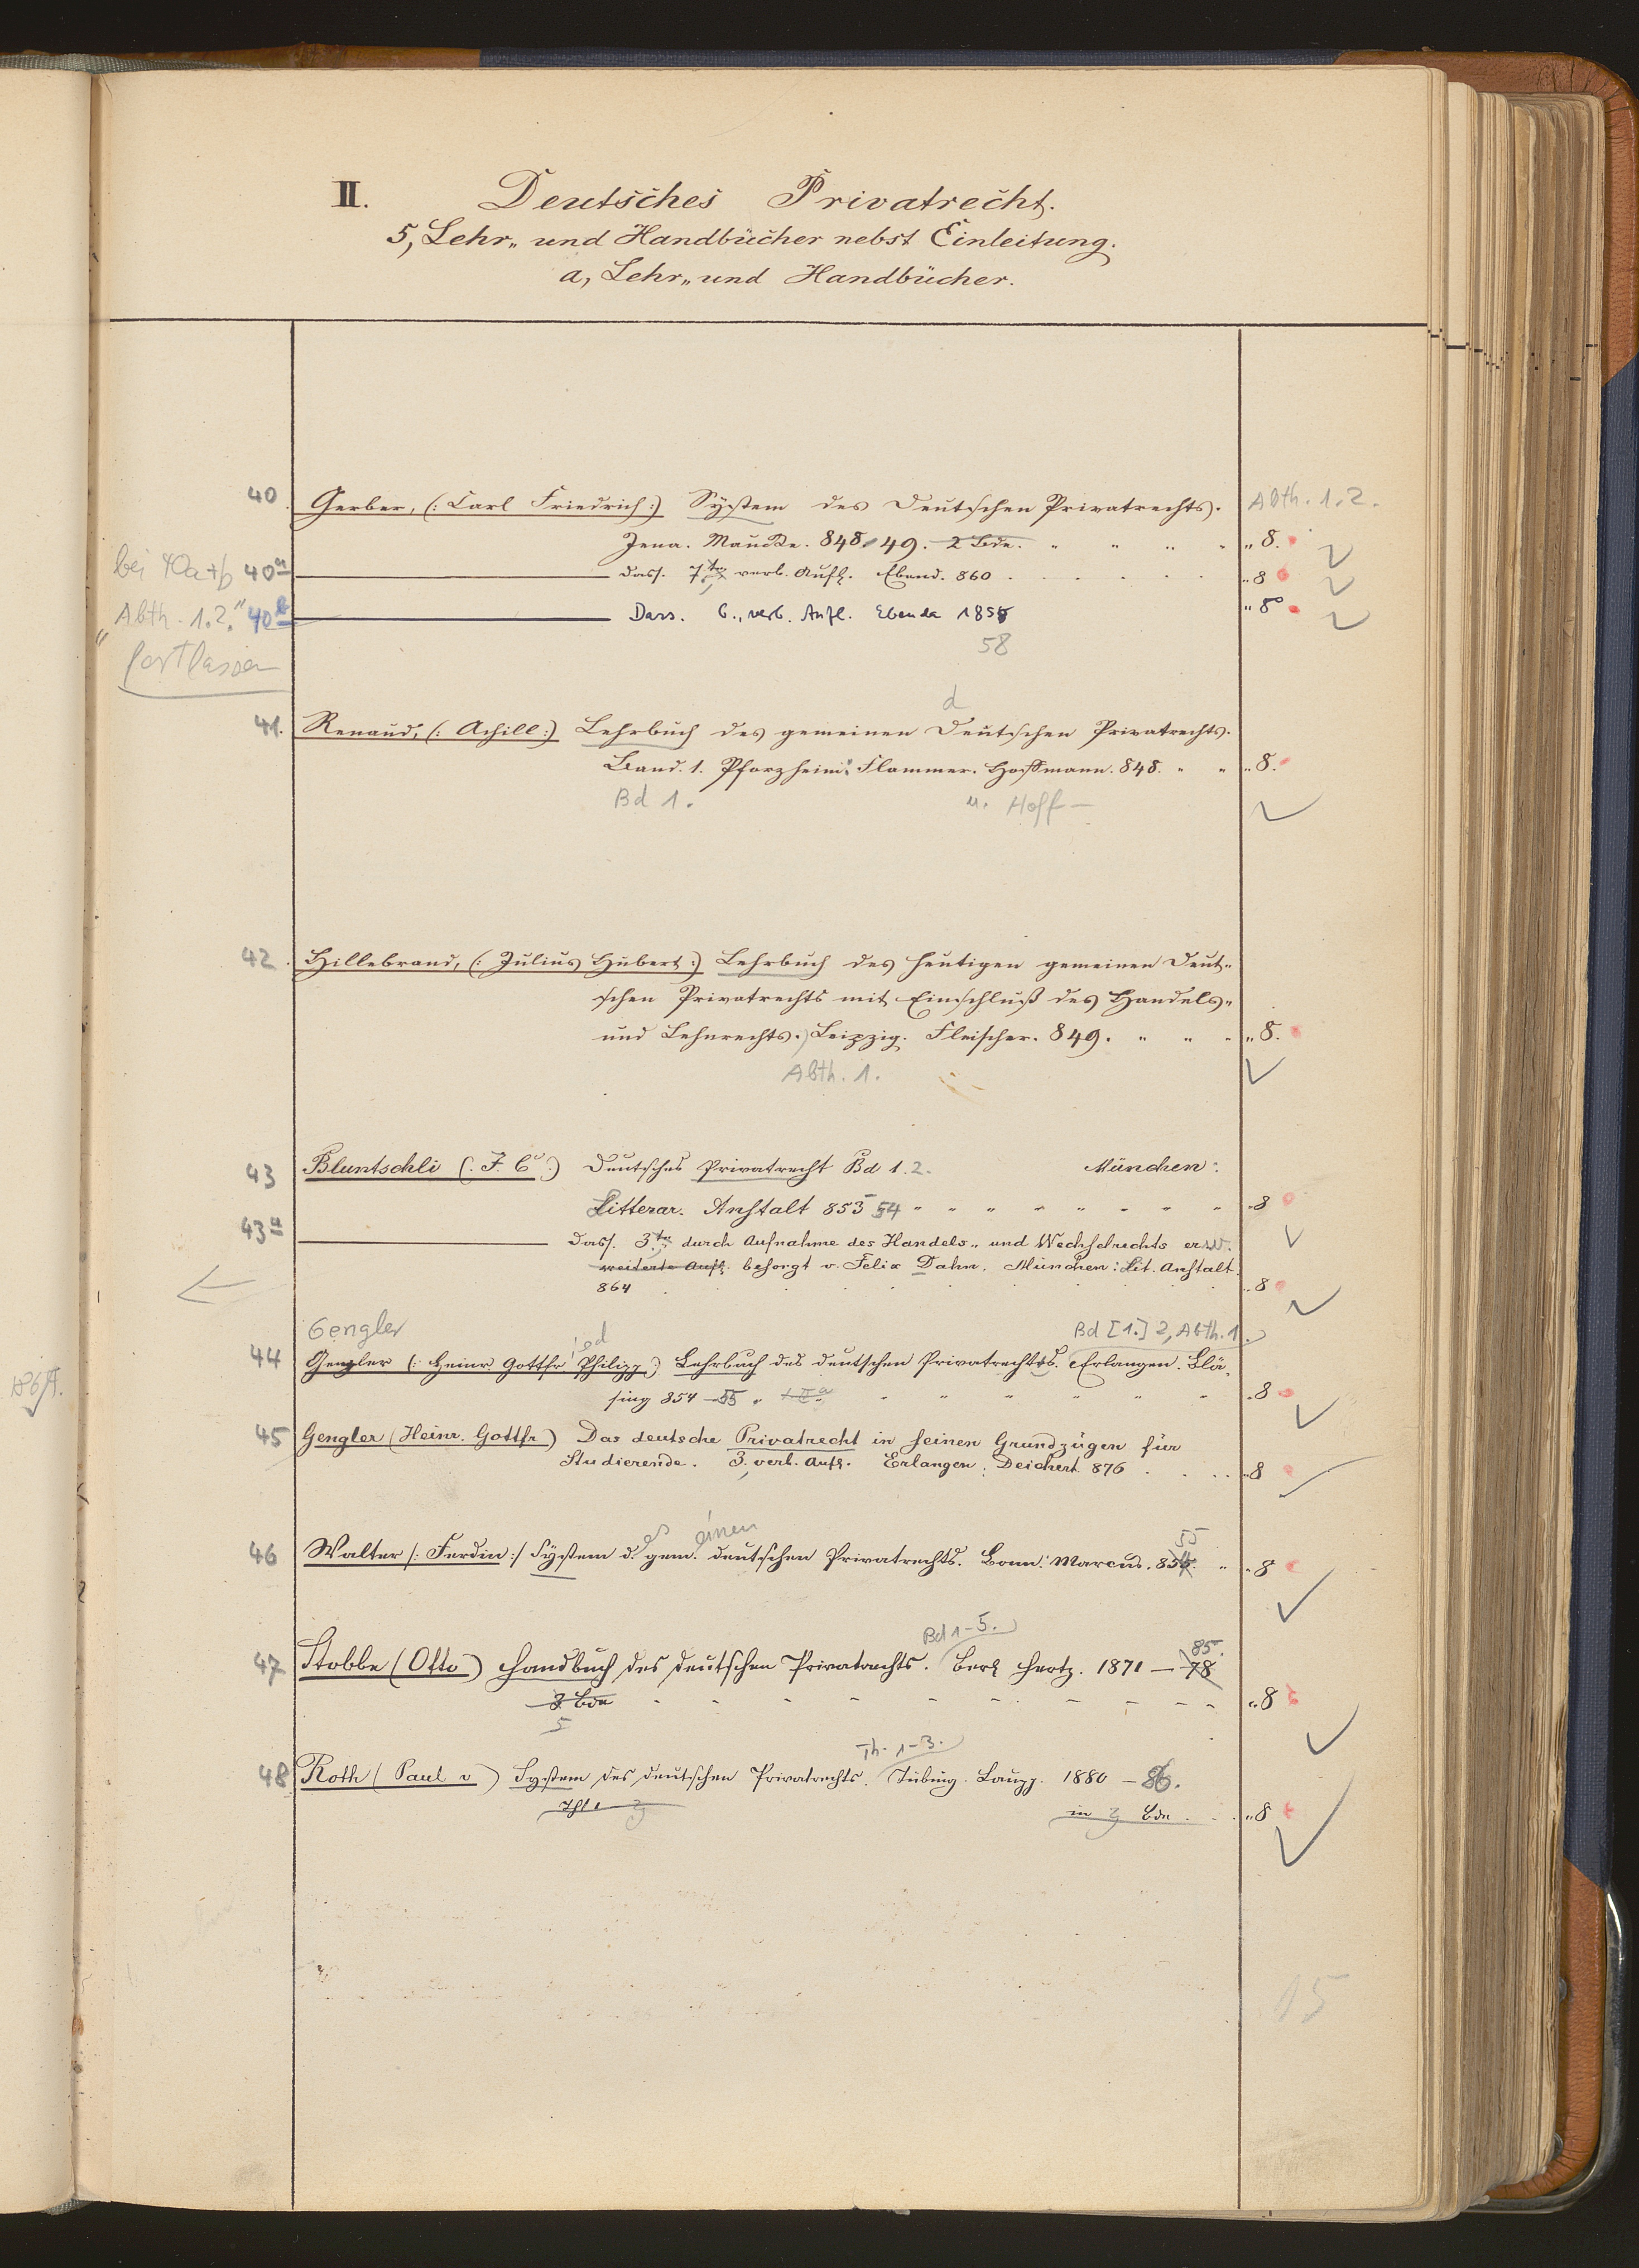 II. Deutsches Privatrecht.
5, Lehr„ und Handbücher nebst Einleitung.
a, Lehr„ und Handbücher.
40 Gerber, (: Carl Friedrich :) System des Deutschen Privatrechts. Abth. 1.2.
Jena. Maucke. 848/49. 2 Bde. „ „ „ „ „ 8.
bei 40a+b 40a dass. 7te verb. Aufl. Ebend. 860 . . . . . . „ 8
"Abth. 1.2." 40b Dass. 6., verb. Aufl. Ebenda 185 „ 8°
58
fortlassen
d
41. Renaud, (: Achill :) Lehrbuch des gemeinen Deutschen Privatrechts.
Band. 1. Pforzheim: Flammer. Hoffmann. 848. „ „ „ 8.
Bd 1. u. Hoff—
42. Hillebrand, (: Julius Hubert :) Lehrbuch des heutigen gemeinen Deut„
schen Privatrechts mit Einschluß des Handels„
und Lehnrechts. Leipzig. Fleischer. 849. „ „ „ „ 8.
Abth. 1.
43 Bluntschli (: J. C. :) Deutsches Privatrecht Bd 1.2. München:
Litterar. Anstalt 853 54 „ „ „ „ „ „ „ „ „ 8
43a dass. 3te durch Aufnahme des Handels„ und Wechselrechts erw.
weiterte Aufl. besorgt v. Felix Dahn. München: Lit. Anstalt.
864 . . . . . . . . „ 8
Gengler Bd [1.] 2, Abth. 1
44 Gengler (: Heinr Gottfr Philipp :) Lehrbuch des deutschen Privatrechts. Erlangen. Blä„
sing 854 — 55 „ „ „ „ „ „ „ 8
45 Gengler (Heinr. Gottfr) Das deutsche Privatrecht in seinen Grundzügen für
Studierende. 3, verb. Aufl. Erlangen: Deichert 876 . . . . „ 8
es einen 55
46 Walter /: Ferdin :/ System d. gem. deutschen Privatrechts. Bonn: Marcus. 85 „ „ 8
Bd 1-5. 85.
47 Stobbe (Otto) Handbuch des deutschen Privatrechts. Berl Hertz. 1871 — 78
3 Bde - - - - - - - - - - „ 8
5
Th. 1-3.
48 Roth (Paul v) System des deutschen Privatrechts. Tübing. Laupp. 1880 — 86.
Thl. 3 in 3 Bdn . . . „ 8
15